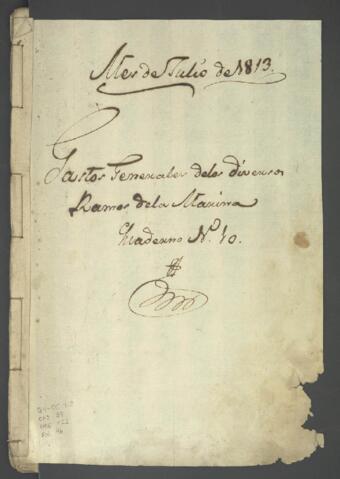 Mes de Julio de 1813.
Gastos Generales delos diversos
Ramos dela Marina
Quaderno N.º 10.